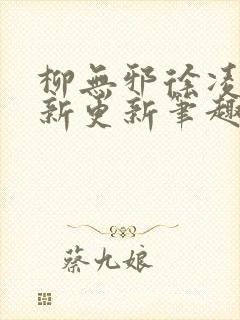 柳無邪徐凌
新更新筆趣
蔡九娘